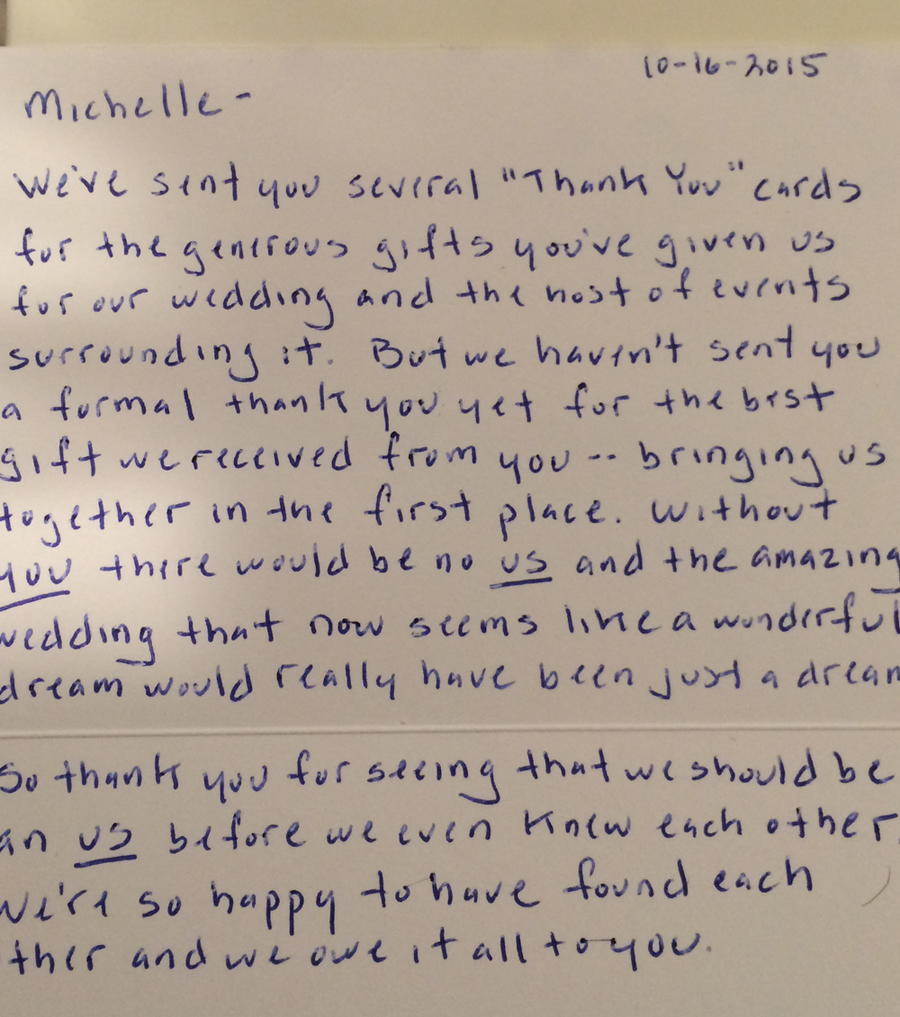 10-16-2015
Michelle-
We've sent you several "Thank You" cards
for the generous gifts you've given us
for our wedding and the host of events
surrounding it. But we haven't sent you
a formal thank you yet for the best
gift we received from you -- bringing us
together in the first place. Without
you there would be no us and the amazing
wedding that now seems like a wonderful
dream would really have been just a dream
So thank you for seeing that we should be
an us before we even knew each other.
We're so happy to have found each
ther and we owe it all to you.